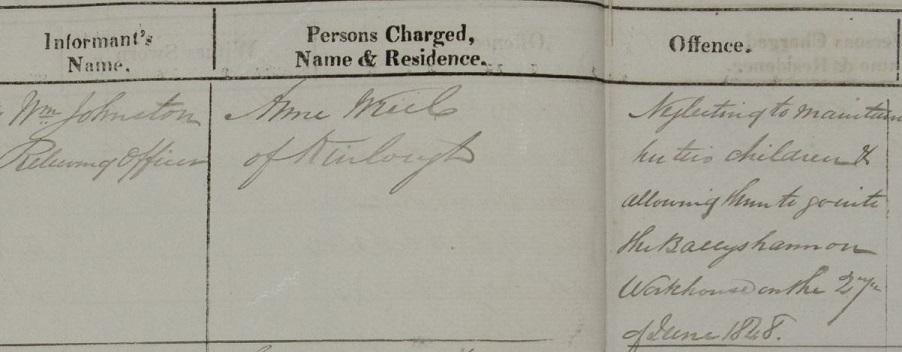 Informant's
Name.
Persons Charged,
Name & Residence.
Offence.
Wm Johnston
Relieving Officer
Anne
of Kinlough
Neglecting to maintain
her two children &
allowing them to go into
the Ballyshannon
Workhouse on the 27th
of June 1848.